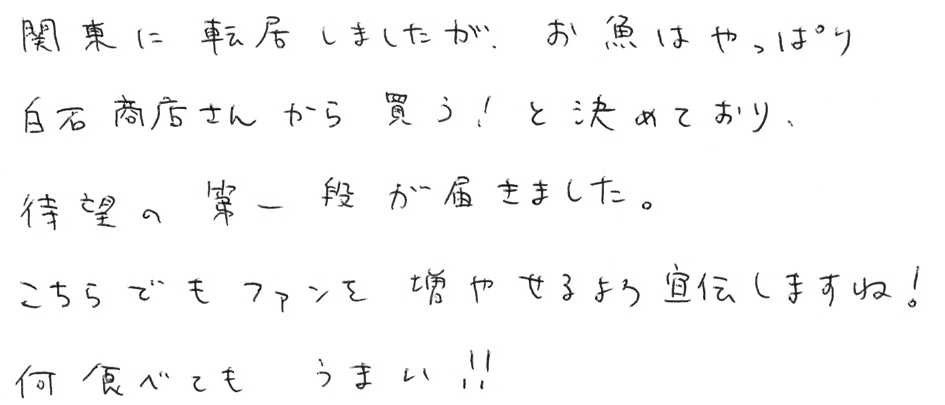 関東に転居しましたが、お魚はやっぱり
白石商店さんから買う！と決めており、
待望の第一段が届きました。
こちらでもファンを増やせるよう宣伝しますね！
何食べてもうまい!!